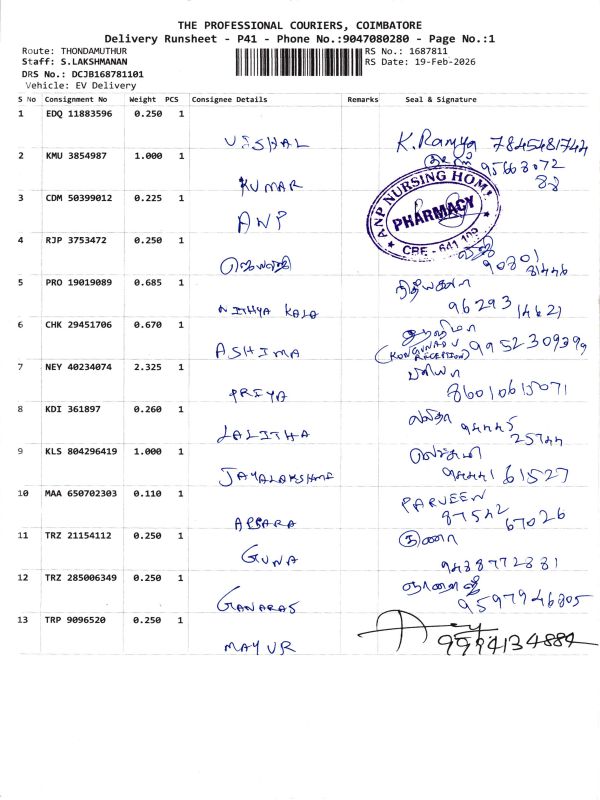 THE PROFESSIONAL COURIERS, COIMBATORE
Delivery Runsheet - P41 - Phone No.:9047080280 - Page No.:1
Route: THONDAMUTHUR RS No.: 1687811
Staff: S.LAKSHMANAN RS Date: 19-Feb-2026
DRS No.: DCJB168781101
Vehicle: EV Delivery
S No Consignment No Weight PCS Consignee Details Remarks Seal & Signature
1 EDQ 11883596 0.250 1
VISHAL K. Ramya 7845481744
2 KMU 3854987 1.000 1
KUMAR
3 CDM 50399012 0.225 1
ANP
ANP NURSING HOME
PHARMACY
4 RJP 3753472 0.250 1
90801
81446
5 PRO 19019089 0.685 1
NITHYA KALA
நித்யகலா
96293 14621
6 CHK 29451706 0.670 1
ASHIMA
(KONGUNADU RECEPTION) 9952309399
7 NEY 40234074 2.325 1
PRIYA
பிரியா
86010615071
8 KDI 361897 0.260 1
LALITHA
லலிதா 94445
25744
9 KLS 804296419 1.000 1
JAYALAKSHMI
94441 61527
10 MAA 650702303 0.110 1
PARVEEN
87542 67026
APSARA
11 TRZ 21154112 0.250 1
GUNA
குணா
9438772881
12 TRZ 285006349 0.250 1
GANARAS
9597946805
13 TRP 9096520 0.250 1
MAYUR
9994134884